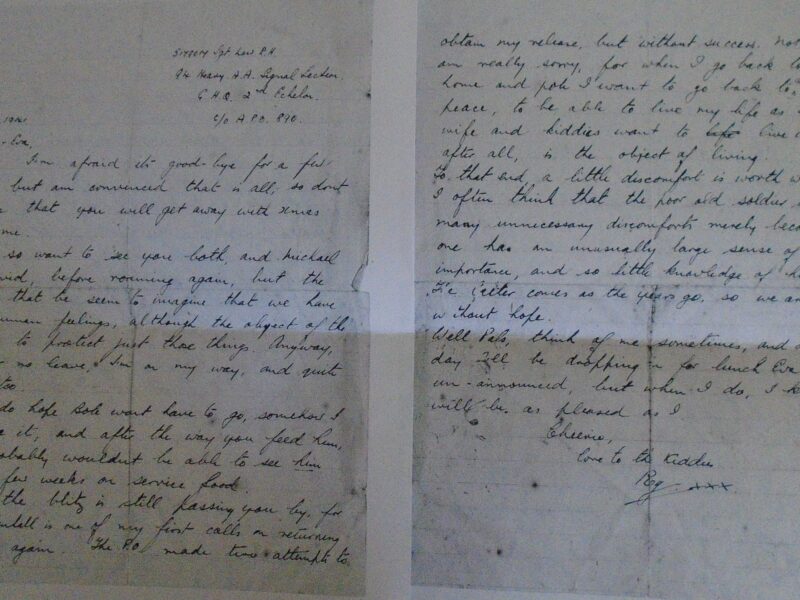 Sgt Law R.H.
94 Heavy A.A. Signal Section
G.H.Q. 2nd Echelon
c/o A.P.O. 890.
Eva,
I'm afraid it's good-bye for a few
but am convinced that is all, so dont
that you will get away with xmas
me.
so want to see you both, and Michael
before roaming again, but the
that be seem to imagine that we have
human feelings, although the object of this
to protect just those things. Anyway,
no leave, I'm on my way, and quit
too.
do hope Bob wont have to go, somehow I
it, and after the way you feed him,
probably wouldn't be able to see him
few weeks on service food.
the blitz is still passing you by, for
is one of my first calls on returning
again. The P.O. made two attempts to
obtain my release, but without success. Not
am really sorry, for when I go back to
home and I want to go back to
peace, to be able to live my life as
wife and kiddies want to live
after all, is the object of living.
To that end, a little discomfort is worth
I often think that the poor old soldier
many unnecessary discomforts merely
one has an unusually large sense of
importance, and so little knowledge of
The latter comes as the years go, so we
without hope.
Well Pals, think of me sometimes, and
day I'll be dropping in for lunch Eva
un-announced, but when I do, I
will be as pleased as I
Cheerio,
Love to the Kiddies
Reg. xxx.